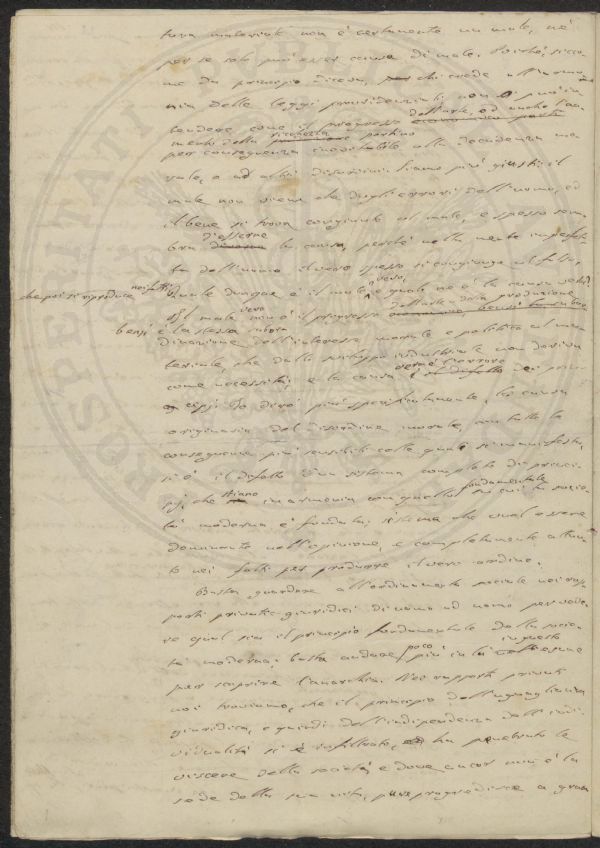 tura materiale non è certamente un male, nè
per se solo può esser causa di male. Poichè, sicco-
me da principio diceva, chi crede all'armo-
nia delle leggi provvidenziali non può in-
tendere come il progresso dell'arte, ed anche l'au-
mento della ricchezza portino
per conseguenza inevitabile alla decadenza mo-
rale, o ad altri disordini. Siamo più giusti: il
male non viene che dagli errori dell'uomo, ed
il bene si trova congiunto al male, e spesso sem-
bra d'esserne la causa, perchè nella mente imperfet-
ta dell'uomo il vero spesso si congiunge al falso,
che poi si riproduce nei fatti.
Quale dunque è il male vero, e quale ne è la causa
Il male vero non è il progresso dell'arte della produzione
bensì è la stessa subor-
dinazione dell'interesse morale e politico al ma-
teriale, che dallo sviluppo industriale non deriva
come necessità; e la causa ne è l'errore nei prin-
cipj. Io dirò più specificatamente, la causa
originaria del disordine morale, con tutte le
conseguenze più sensibili colle quali si manifesta,
si è il difetto d'un sistema completo di princi-
pj, che stiano in armonia con quello fondamentale su cui la socie-
tà moderna è fondata; sistema che vuol essere
dominante nell'opinione, e completamente attua-
to nei fatti per produrre il vero ordine.
Basta guardare all'ordinamento sociale nei rap-
porti privati-giuridici di uomo ad uomo per vede-
re qual sia il principio fondamentale della socie-
tà moderna; basta andare poco più in là in questo
per scoprire l'anarchia. Nei rapporti privati
noi troviamo, che il principio dell'uguaglianza
giuridica, e quindi dell'indipendenza dell'indi-
vidualità si è infiltrato, ha penetrato le
viscere della società, e dove ancor non è la
sede della sua vita, pure progredisce a gran